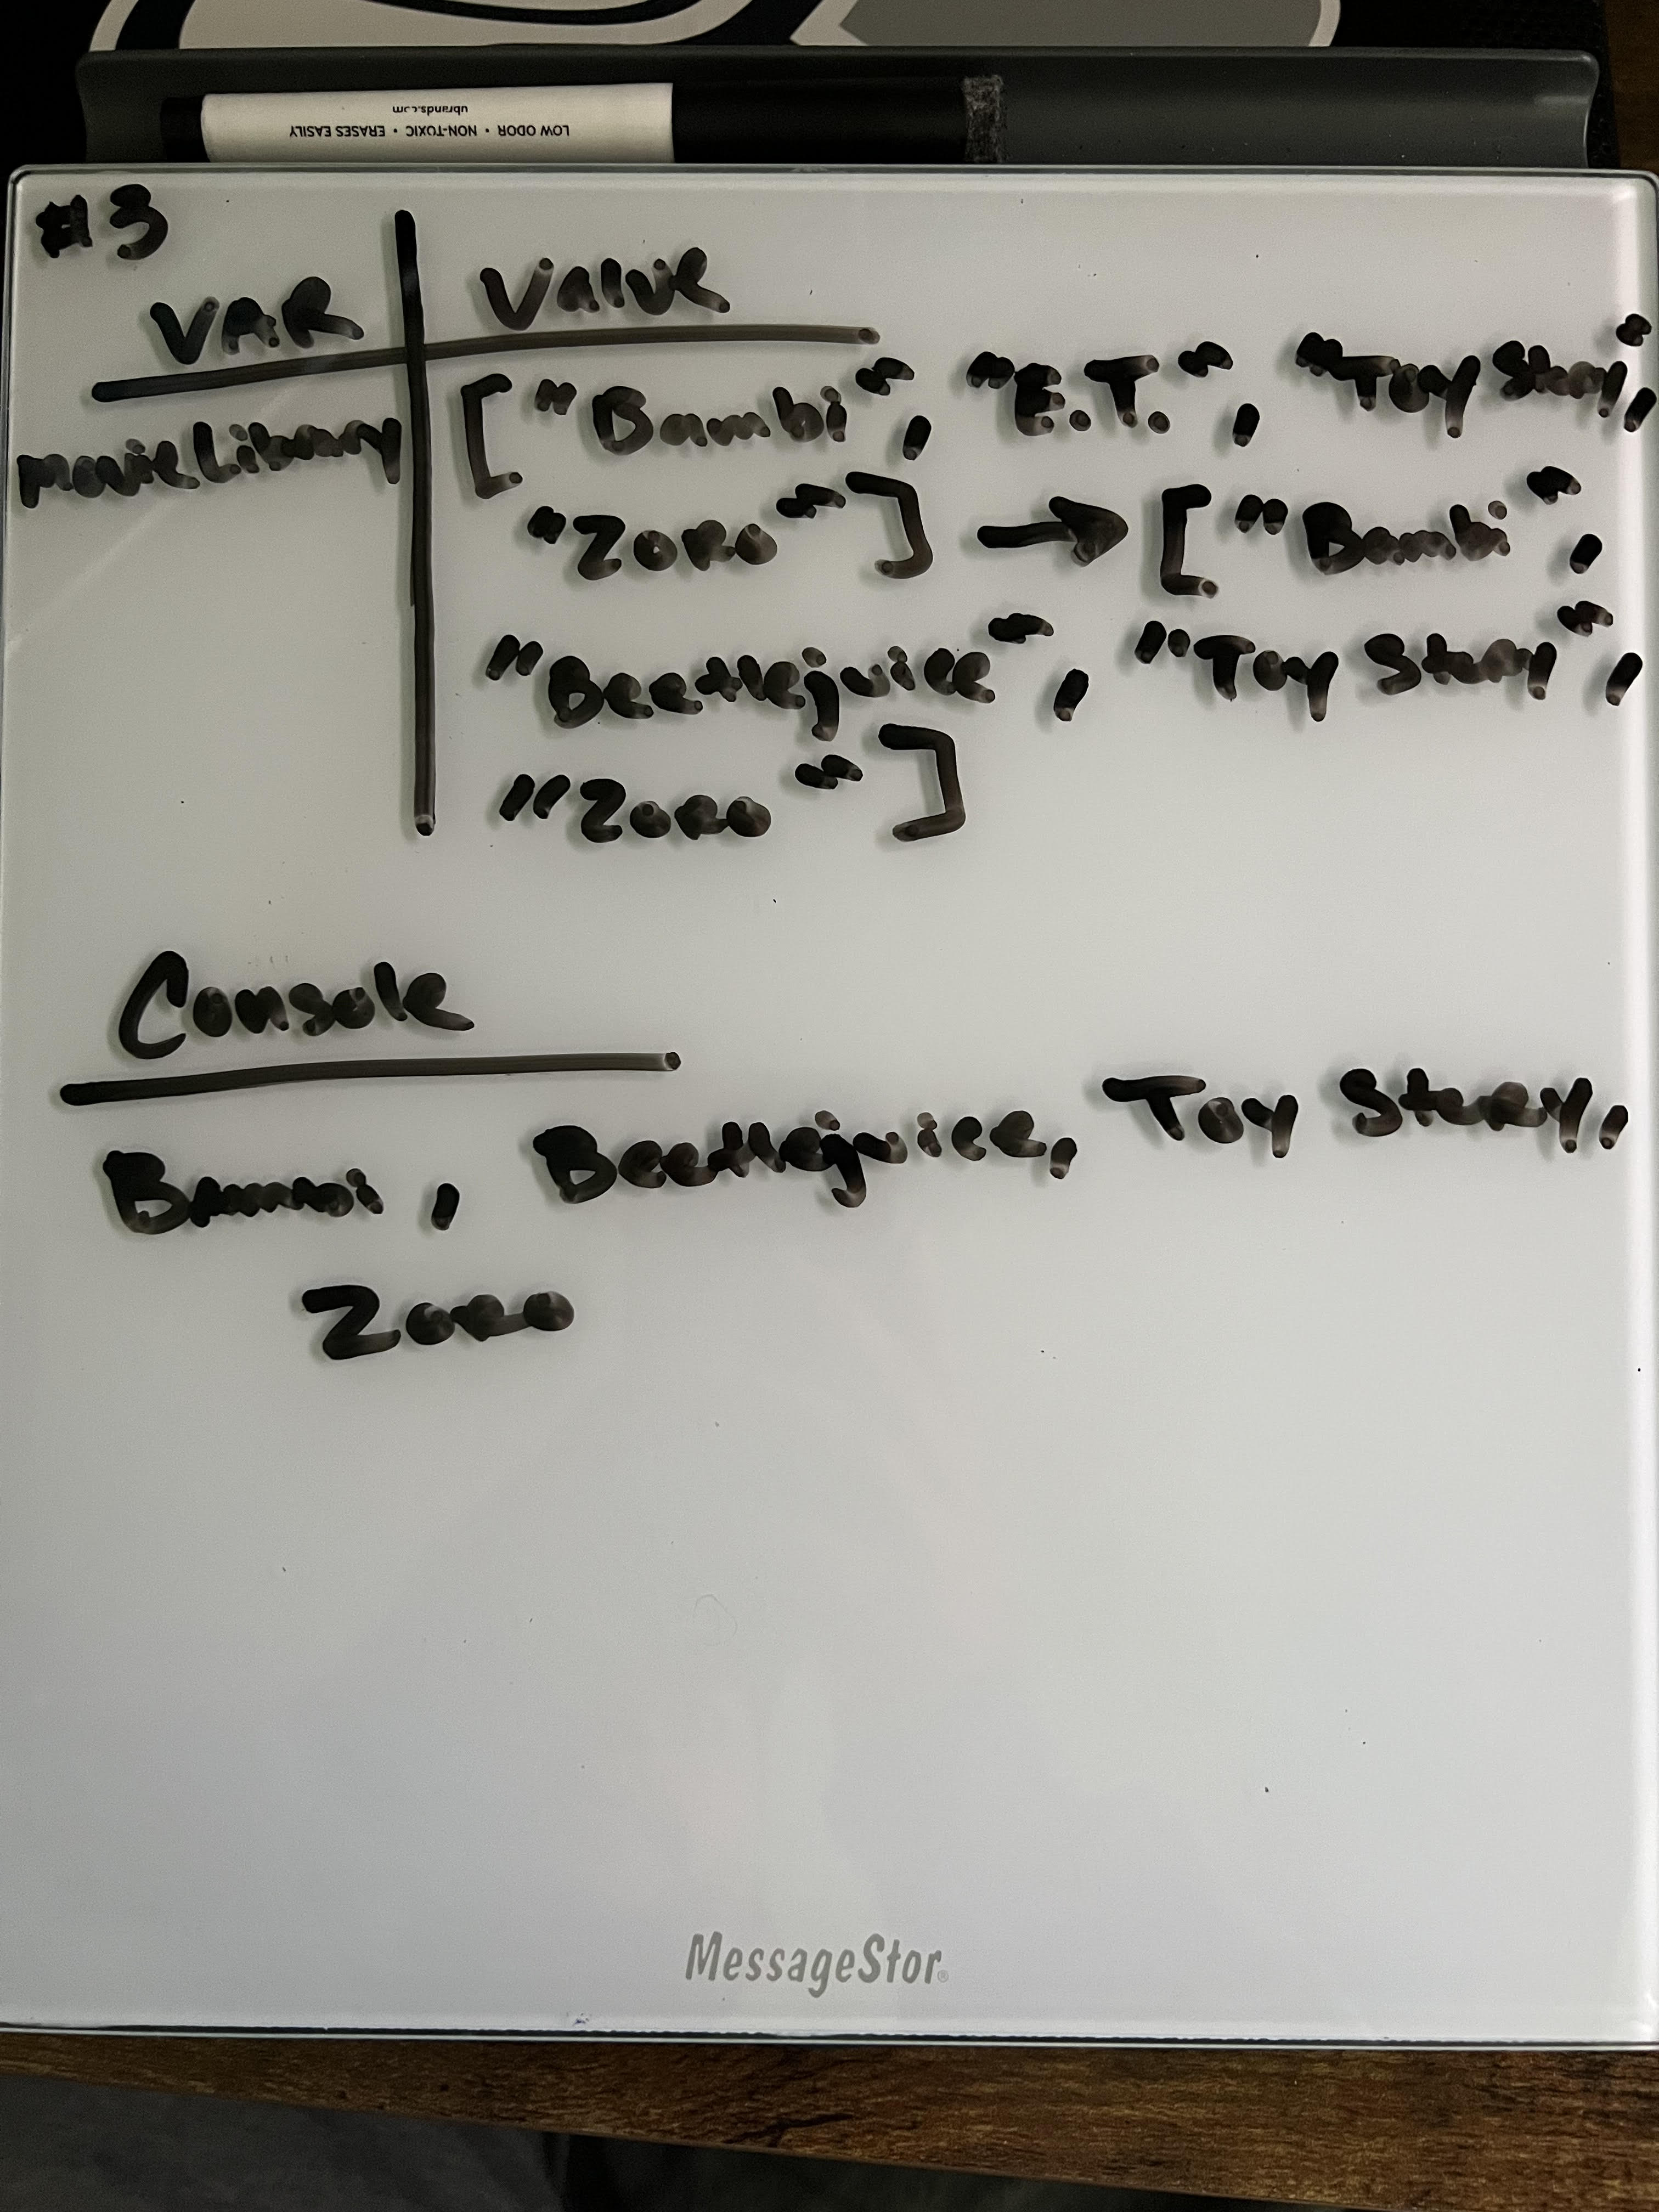 ubrands.com
LOW ODOR • NON-TOXIC • ERASES EASILY
#3
VAR Value
movieLibrary ["Bambi", "E.T.", "Toy Story",
"Zoro"] → ["Bambi",
"Beetlejuice", "Toy Story",
"Zoro"]
Console
Bambi, Beetlejuice, Toy Story,
Zoro
MessageStor®